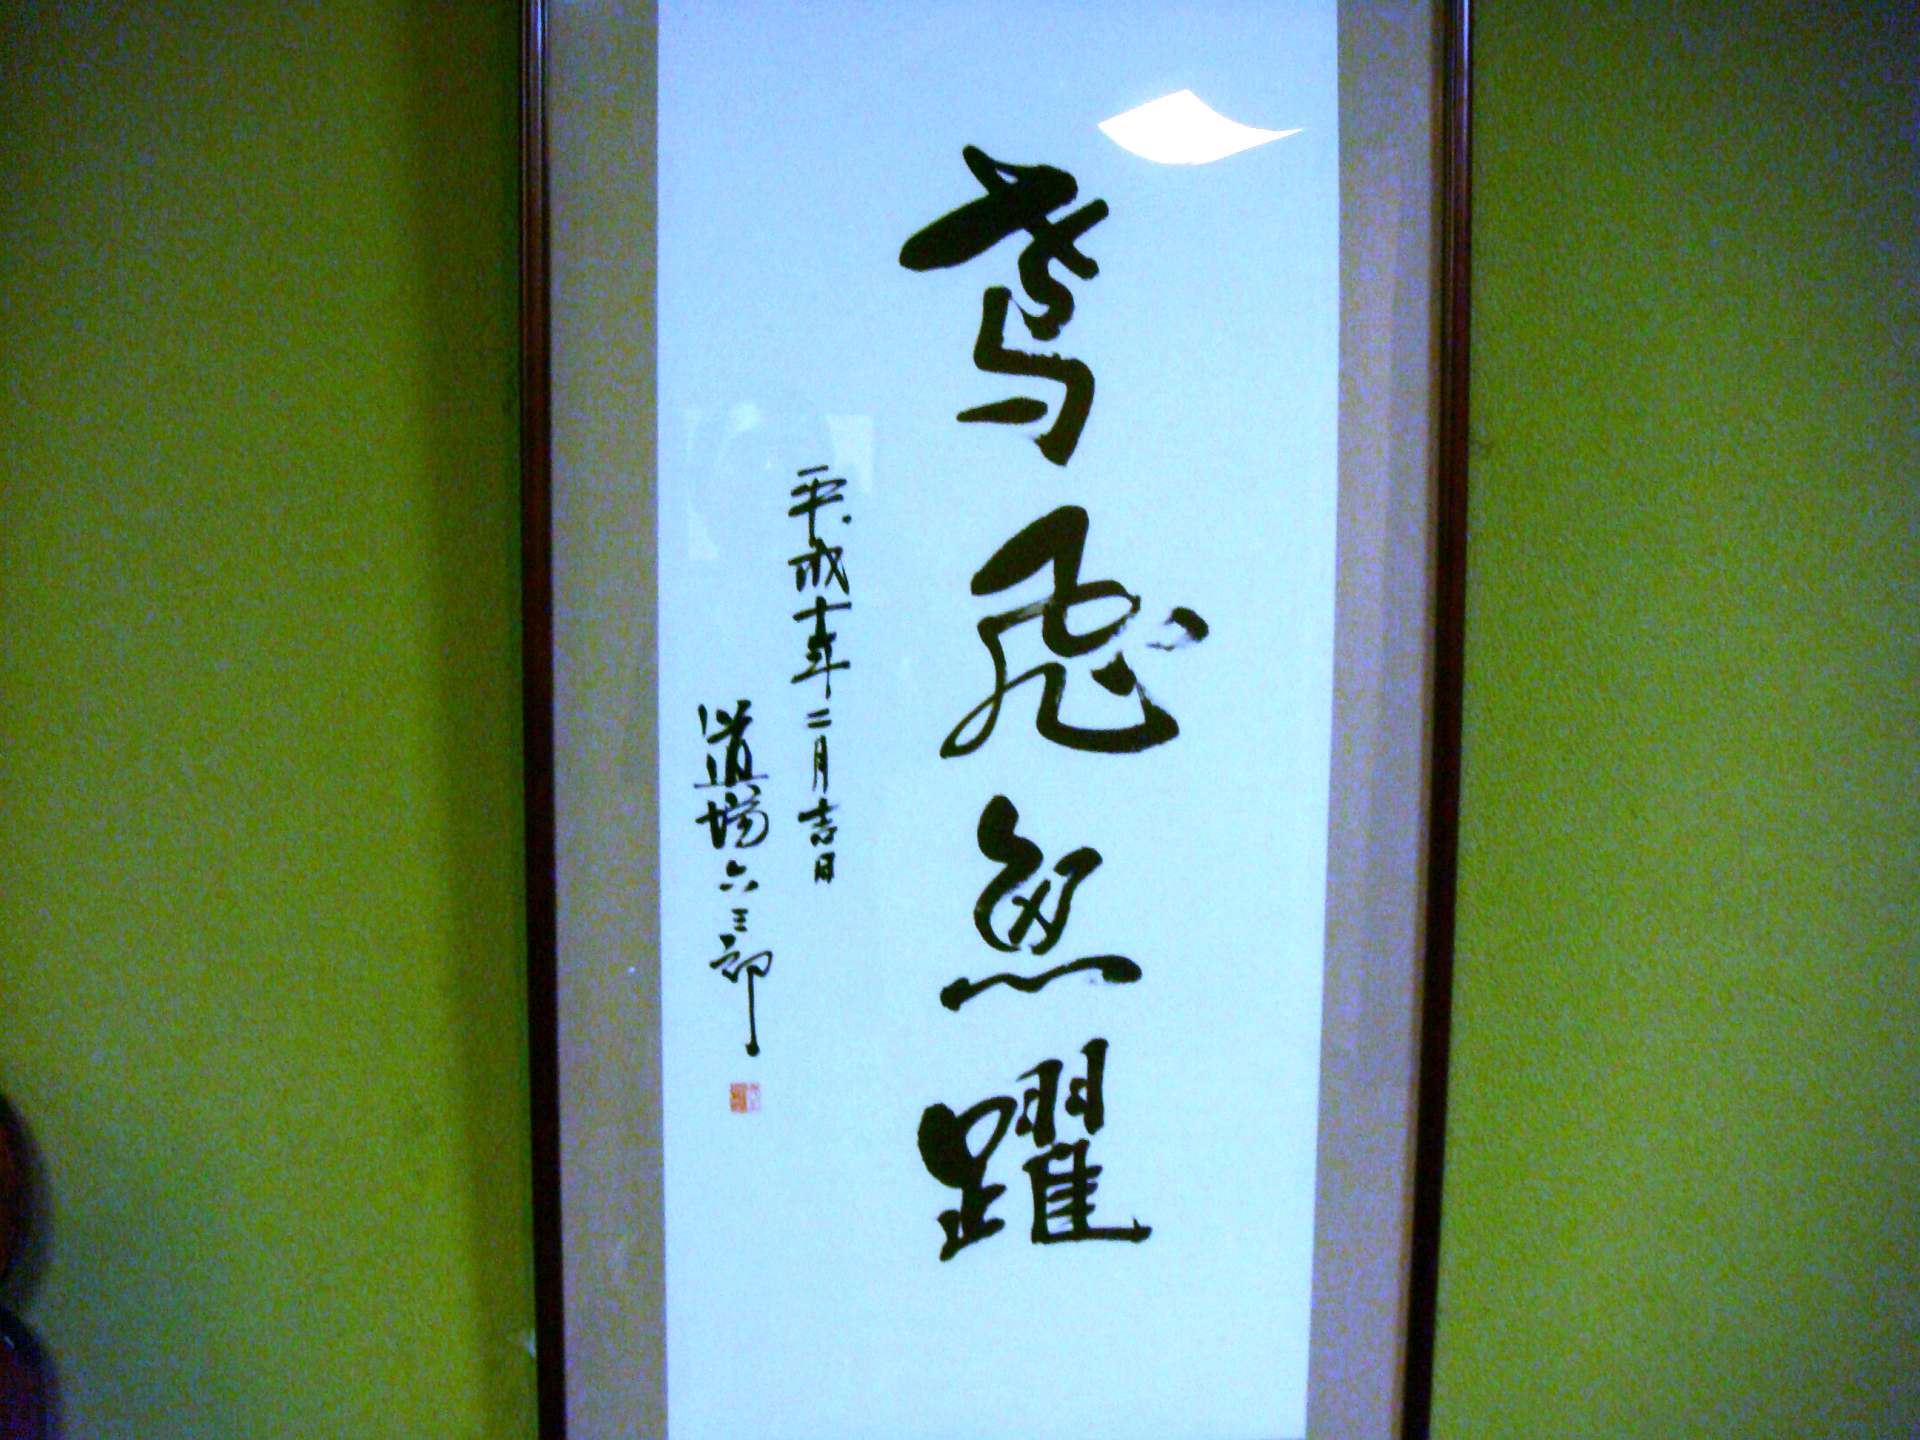 鳶飛魚躍
平成十年二月吉日
道場六三郎